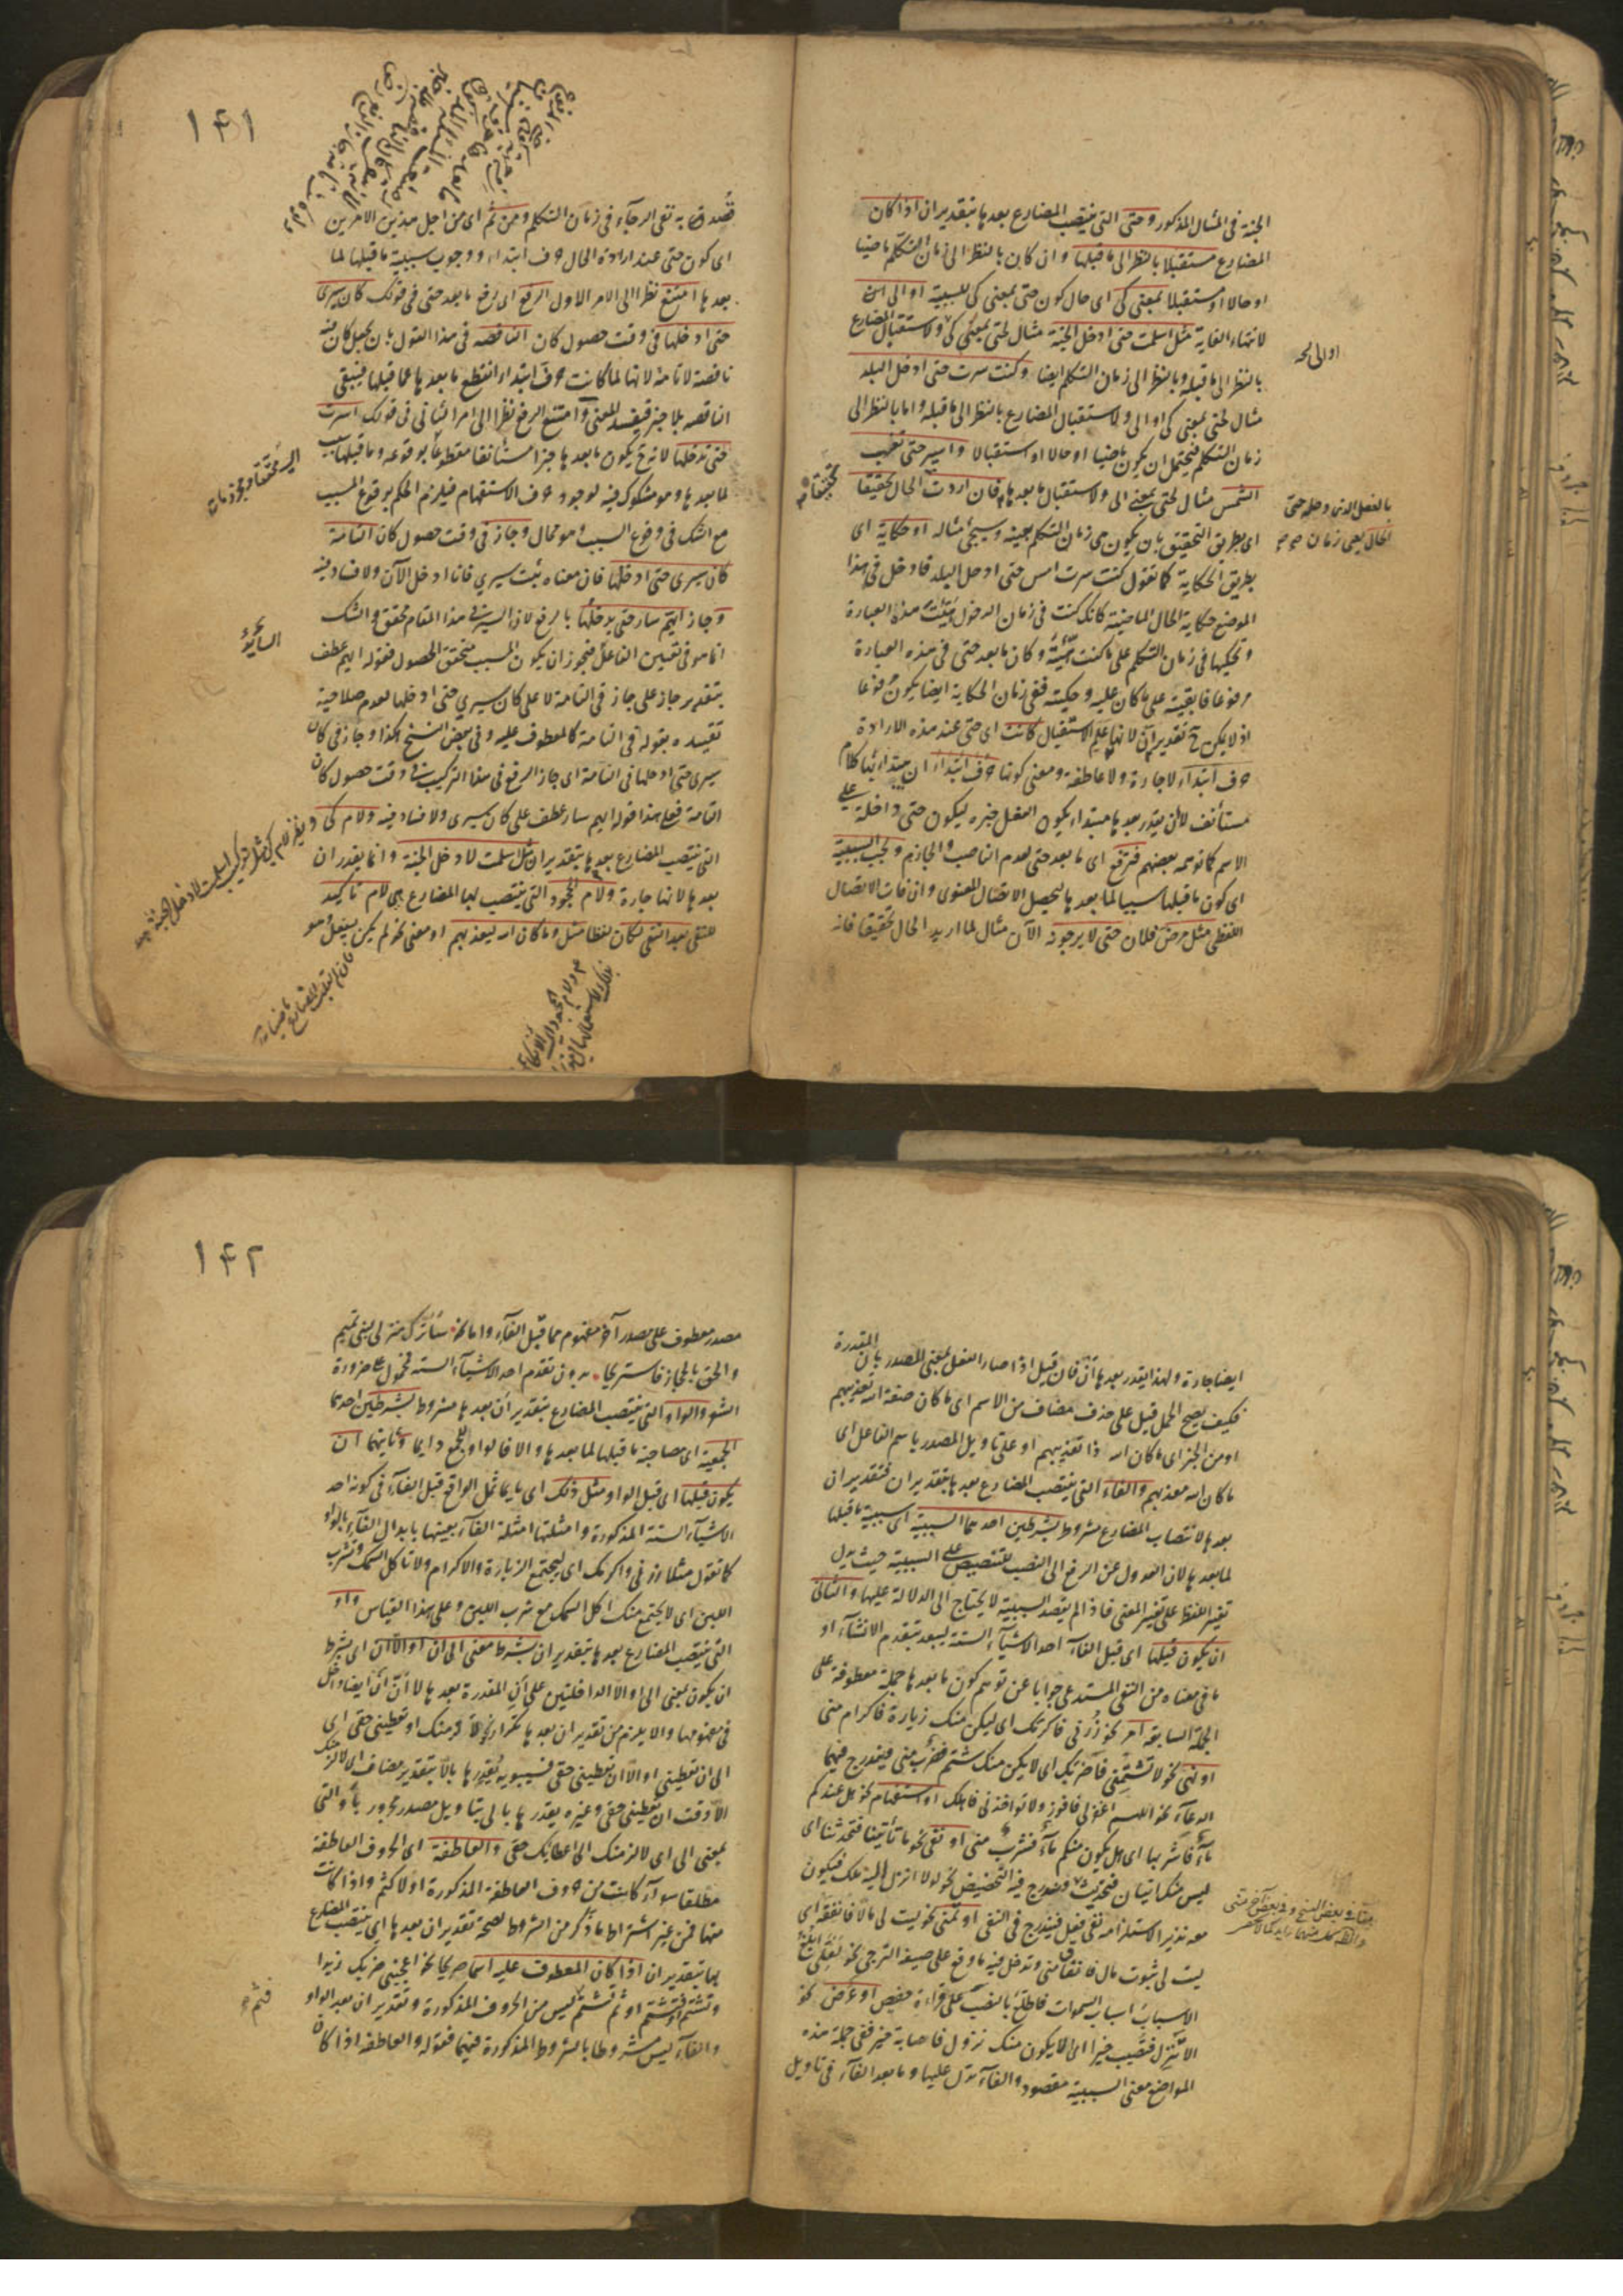 الجنة فى المثال المذكور وحتى التى ينتصب المضارع بعدها بتقدير ان اذا كان
المضارع مستقبلا بالنظر الى ما قبلها وان كان بالنظر الى زمان التكلم ماضيا
او حالا او مستقبلا بمعنى كى اى حال كون حتى بمعنى كى للسببية او الى اى
لانتهاء الغاية مثل اسلمت حتى ادخل الجنة مثال لحتى بمعنى كى ولاستقبال المضارع
بالنظر الى ما قبله وبالنظر الى زمان التكلم ايضا وكنت سرت حتى ادخل البلد
مثال لحتى بمعنى كى او الى ولاستقبال المضارع بالنظر الى ما قبله واما بالنظر الى
زمان التكلم فيحتمل ان يكون ماضيا او حالا او استقبالا واسير حتى تغيب
الشمس مثال لحتى بمعنى الى ولاستقبال ما بعدها فان اردت الحال تحقيقا
اى بطريق التحقيق بان يكون هى زمان التكلم بعينه وسيجئ مثاله او حكاية اى
بطريق الحكاية كما تقول كنت سرت امس حتى ادخل البلد فادخل فى هذا
الموضع حكاية الحال الماضية كانك كنت فى زمان الدخول هيئت هذه العبارة
وتحكيها فى زمان التكلم على ما كنت هيئته وكان ما بعد حتى فى هذه العبارة
مرفوعا فابقيته على ما كان عليه وحكيته ففى زمان الحكاية ايضا يكون مرفوعا
اذ لا يمكن ح تقدير ان لانها علم الاستقبال كانت اى حتى عند هذه الارادة
حرف ابتداء لا جارة ولا عاطفة ومعنى كونها حرف ابتداء ان يبتدأ بها كلام
مستأنف لا ان يقدر بعدها مبتداء يكون الفعل خبره ليكون حتى داخلة على
الاسم كما توهمه بعضهم فيرفع اى ما بعد حتى لعدم الناصب والجازم ويجب السببية
اى كون ما قبلها سببا لما بعدها ليحصل الاتصال المعنوى وان فات الاتصال
اللفظى مثل مرض فلان حتى لا يرجونه الآن مثال لما اريد الحال تحقيقا فانه
او الى الخ
تحقيقا
١٤١
قصد به نفى الرجاء فى زمان التكلم ومن ثم اى من اجل هذين الامرين
اى كون حتى عند ارادة الحال حرف ابتداء ووجوب سببية ما قبلها لما
بعدها امتنع نظرا الى الامر الاول الرفع اى رفع ما بعد حتى فى قولك كان سيرى
حتى ادخلها فى وقت حصول كان الناقصة فى هذا القول بان يجعل كان فيه
ناقصة لا تامة لانها لما كانت حرف ابتداء انقطع ما بعدها عما قبلها فيبقى
الناقصة بلا خبر فيفسد المعنى وامتنع الرفع نظرا الى امر الثانى فى قولك اسرت
حتى تدخلها لانه ح يكون ما بعدها خبرا مستأنفا مقطوعا بوقوعه وما قبلها سبب
لما بعدها وهو مشكوك فيه لوجود حرف الاستفهام فيلزم الحكم بوقوع المسبب
مع الشك فى وقوع السبب وهو محال وجاز فى وقت حصول كان التامة
كان سيرى حتى ادخلها فان معناه ثبت سيرى فانا ادخل الآن ولا فساد فيه
وجاز ايهم سار حتى يدخلها بالرفع لان السير فى هذا المقام محقق والشك
انما هو فى تعيين الفاعل فيجوز ان يكون المسبب متحقق الحصول فقوله ايهم عطف
بتقدير جاز على جاز فى التامة لا على كان سيرى حتى ادخلها لعدم صلاحية
تقييده بقوله فى التامة كالمعطوف عليه وفى بعض النسخ هكذا وجاز فى كان
سيرى حتى ادخلها فى التامة اى جاز الرفع فى هذا التركيب فى وقت حصول كان
التامة فعلى هذا قوله ايهم سار عطف على كان سيرى ولا فساد فيه ولام كى
التى ينتصب المضارع بعدها بتقدير ان مثل اسلمت لادخل الجنة وانما يقدر ان
بعدها لانها جارة ولام الجحود التى ينتصب بها المضارع هى لام تاكيد
للنفى بعد النفى لكان لفظا مثل وما كان الله ليعذبهم او معنى نحو لم يكن ليفعل وهو
ايضا جارة ولهذا يقدر بعدها ان فان قيل اذا صار الفعل بمعنى المصدر بان المقدرة
فكيف يصح الحمل قيل على حذف مضاف من الاسم اى ما كان صفة الله تعذيبهم
او من الخبر اى ما كان الله ذا تعذيبهم او على تأويل المصدر باسم الفاعل اى
ما كان الله معذبهم والفاء التى ينتصب المضارع بعدها بتقدير ان فتقدير ان
بعدها لانتصاب المضارع مشروط بشرطين احدهما السببية اى سببية ما قبلها
لما بعدها لان العدول عن الرفع الى النصب للتنصيص على السببية حيث يدل
تغيير اللفظ على تغيير المعنى فاذا لم يقصد السببية لا يحتاج الى الدلالة عليها والثانى
ان يكون قبلها اى قبل الفاء احد الاشياء الستة ليبعد بتقدم الانشاء او
ما فى معناه من النفى المستدعى جوابا عن توهم كون ما بعدها جملة معطوفة على
الجملة السابقة امر نحو زرنى فاكرمك اى ليكن منك زيارة فاكرام منى
او نهى نحو لا تشتمنى فاضربك اى لا يكن منك شتم فضرب منى فيندرج فيهما
الدعاء نحو اللهم اغفر لى فافوز ولا تؤاخذنى فاهلك او استفهام نحو هل عندكم
ماء فاشربه اى هل يكون منكم ماء فشرب منى او نفى نحو ما تأتينا فتحدثنا اى
ليس منك اتيان فتحديث ويندرج فيه التحضيض نحو لولا انزل اليه ملك فيكون
معه نذيرا لاستلزامه نفى فعل فيندرج فى النفى او تمنى نحو ليت لى مالا فانفقه اى
ليت لى ثبوت مال فانفاق منى وتدخل فيه ما وقع على صيغة الترجى نحو لعلى ابلغ
الاسباب اسباب السموات فاطلع بالنصب على قراءة حفص او عرض نحو
الا تنزل فتصيب خيرا اى الا يكون منك نزول فاصابة خير ففى جملة هذه
المواضع معنى السببية مقصود والفاء تدل عليها وما بعد الفاء فى تاويل
١٤٢
مصدر معطوف على مصدر آخر مفهوم مما قبل الفاء واما نحو سأترك منزلى لبنى تميم
والحق بالحجاز فاستريحا بدون تقدم احد الاشياء الستة فمحمول على ضرورة
الشعر والواو التى ينتصب المضارع بتقدير ان بعدها مشروط بشرطين احدهما
الجمعية اى مصاحبة ما قبلها لما بعدها والا فالواو للجمع دايما وثانيهما ان
يكون قبلها اى قبل الواو مثل ذلك اى ما يماثل الواقع قبل الفاء فى كونه احد
الاشياء الستة المذكورة وامثلتها امثلة الفاء بعينها بابدال الفاء بالواو
كما تقول مثلا زرنى واكرمك اى ليجتمع الزيارة والاكرام ولا تأكل السمك وتشرب
اللبن اى لا يجتمع منك اكل السمك مع شرب اللبن وعلى هذا القياس واو
التى ينتصب المضارع بعدها بتقدير ان بشرط معنى الى ان او الا ان اى بشرط
ان يكون بمعنى الى او الا الداخلتين على ان المقدرة بعدها لا ان ان ايضا داخل
فى مفهومها والا يلزم من تقدير ان بعدها تكرار نحو لالزمنك او تعطينى حقى اى
الى ان تعطينى او الا ان تعطينى حقى فسيبويه يقدرها بالا بتقدير مضاف اى لالزمنك
الا وقت ان تعطينى حقى وغيره يقدرها بالى بتاويل مصدر مجرور باو التى
بمعنى الى اى لالزمنك الى اعطائك حقى والعاطفة اى الحروف العاطفة
مطلقا سواء كانت من حروف العاطفة المذكورة او لا كثم واذا كانت
منها فمن غير اشتراط ما ذكر من الشروط لصحة تقدير ان بعدها اى ينتصب المضارع
بها بتقدير ان اذا كان المعطوف عليه اسما صريحا نحو اعجبنى ضربك زيدا
وتشتم او فتشتم او ثم تشتم وليس من الحروف المذكورة وتقدير ان بعد الواو
والفاء ليس مشروطا بالشروط المذكورة فيهما فقوله والعاطفة اذا كان